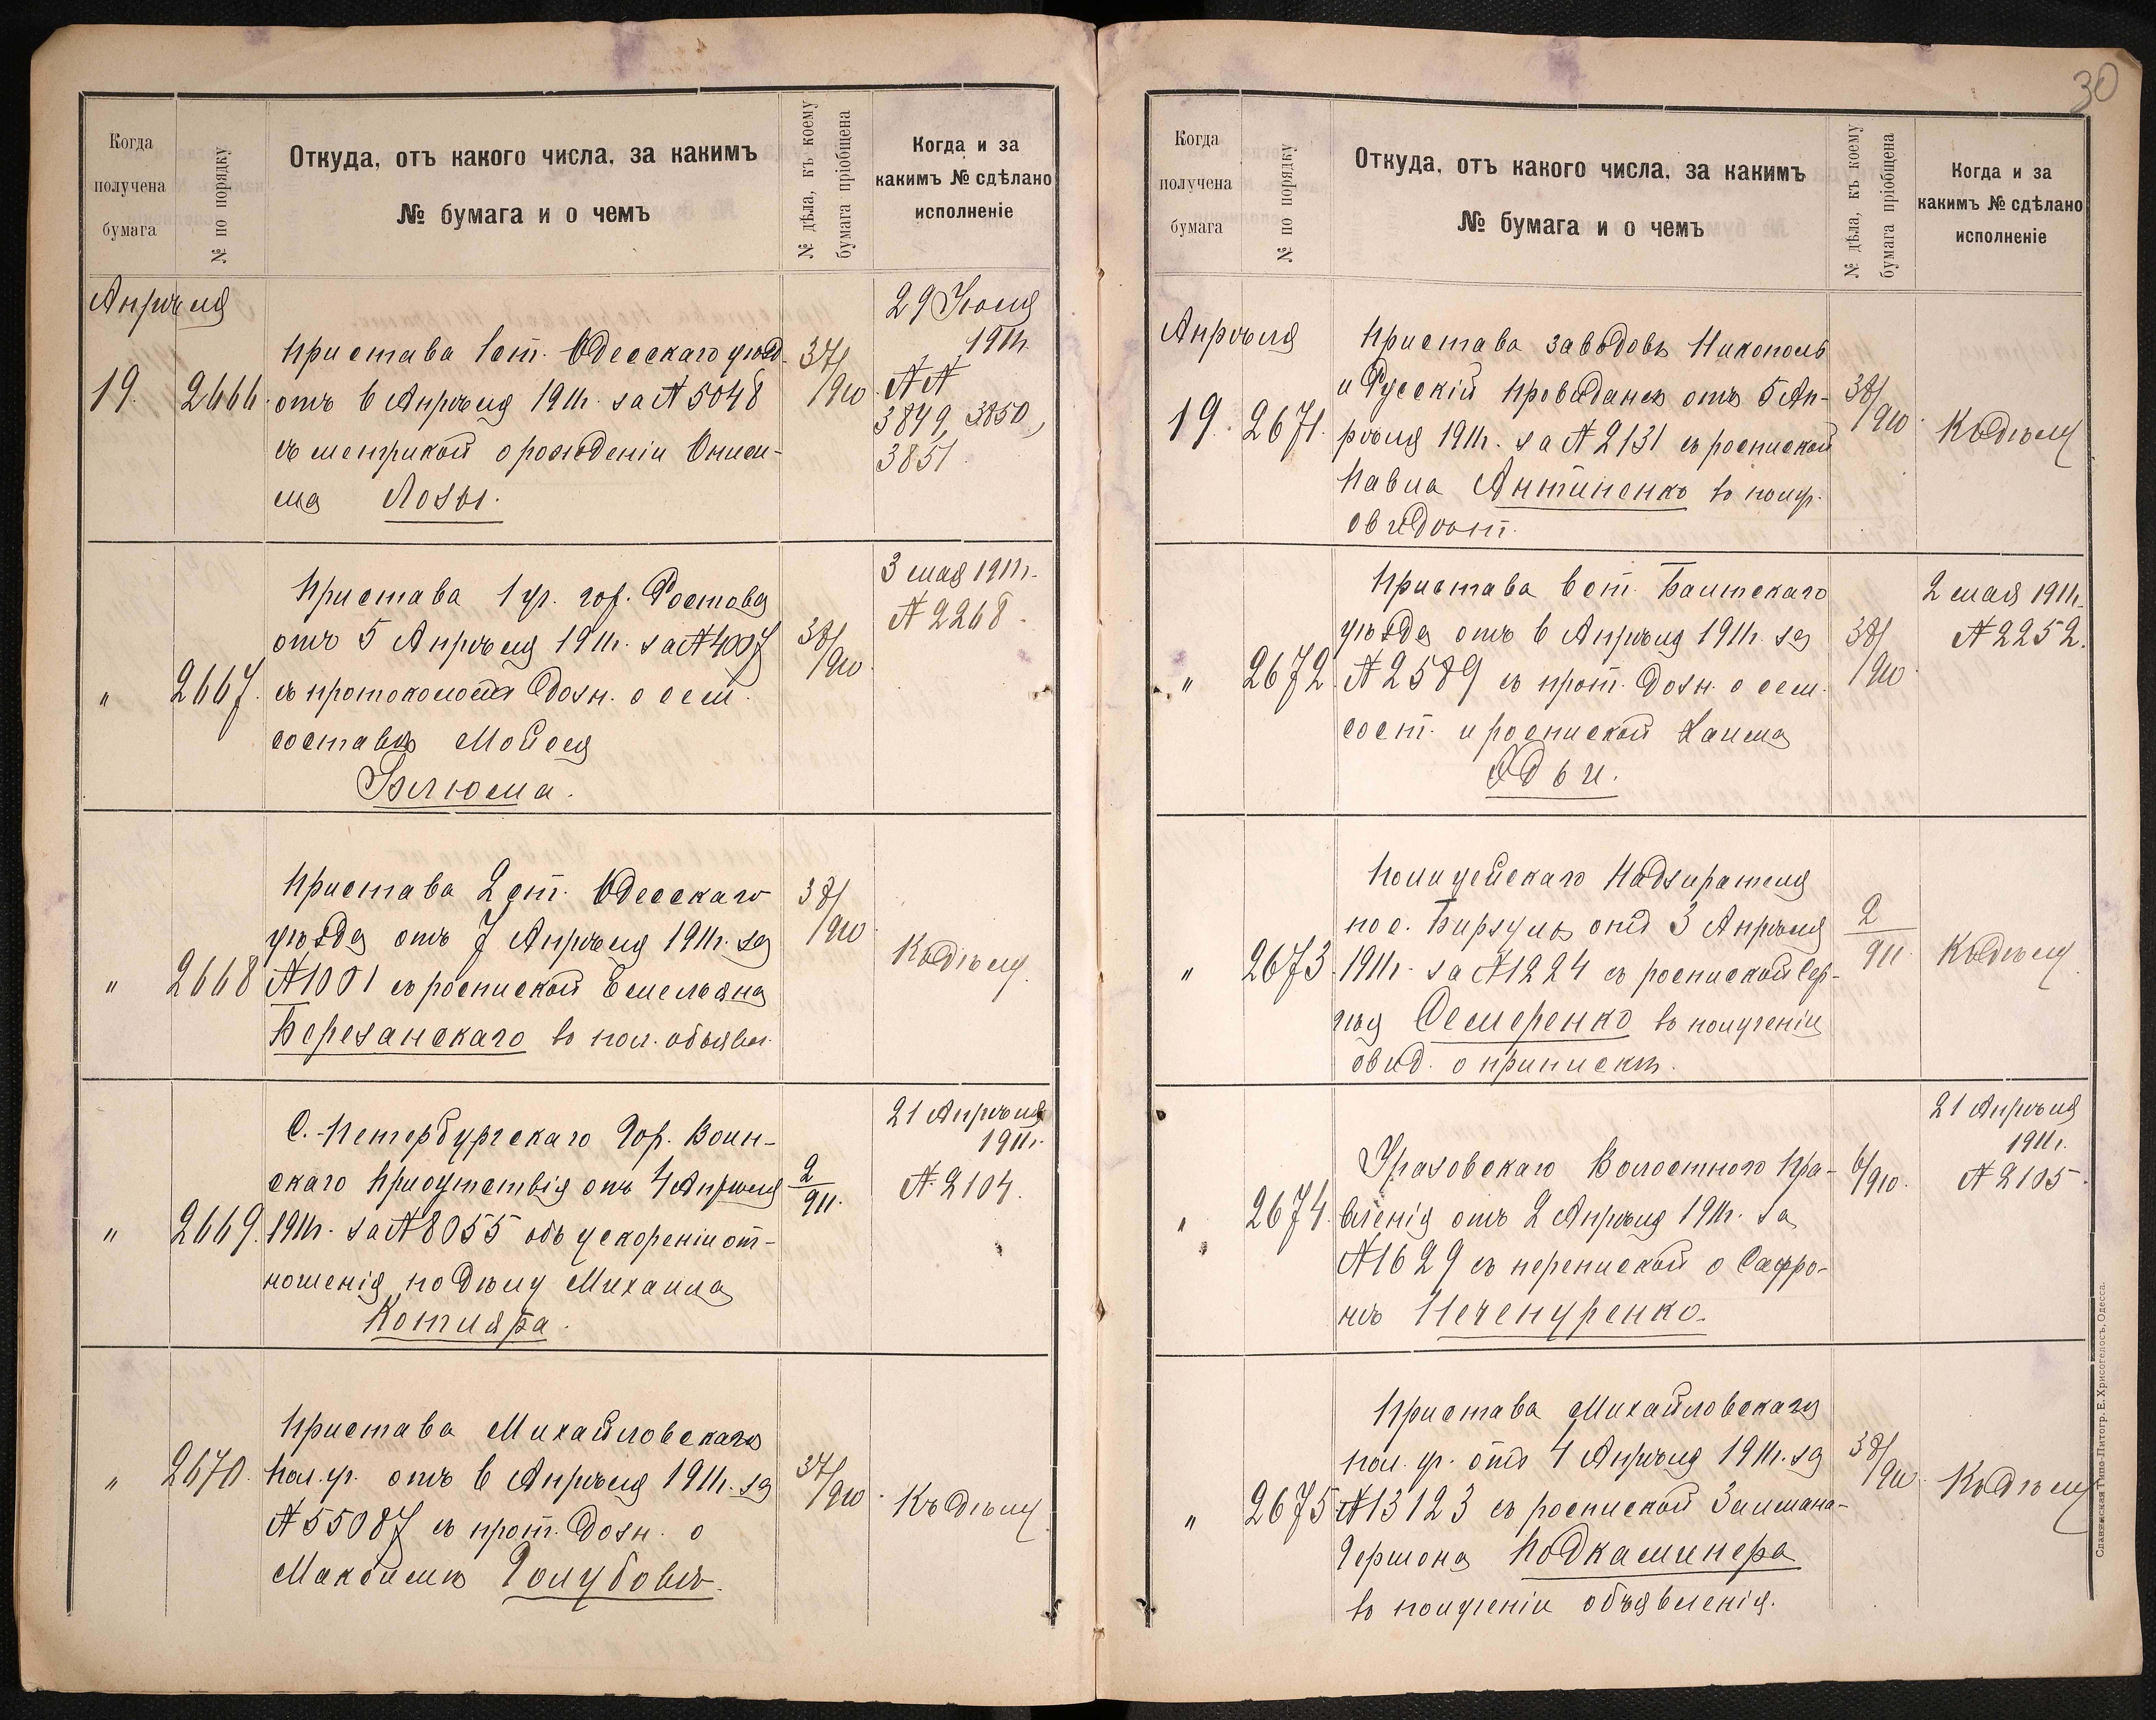 Когда
получена
бумага
№ по порядку
Откуда, отъ какого числа, за какимъ
№ бумага и о чемъ
№ дѣла, къ коему
бумага пріобщена
Когда и за
какимъ № сдѣлано
исполненіе
Апрѣля
19.
2666.
Пристава 1 ст. Одесскаго уѣзд.
отъ 6 Апрѣля 1911г. за № 5048
съ метрикой о рожденіи Ониси-
ма Лозы.
37/910.
29 Іюля
1911г.
№№
3849, 3850,
3851
"
2667.
Пристава 1 уч. гор. Ростова
отъ 5 Апрѣля 1911г. за № 4007
съ протоколомъ дозн. о сем.
составѣ Мойсея
Блюма.
38/910.
3 мая 1911г.
№ 2268.
"
2668
Пристава 2 ст. Одесскаго
уѣзда отъ 7 Апрѣля 1911г. за
№ 1001 съ роспиской Емельяна
Березанскаго въ пол. объявл.
38/910.
Къ дѣлу.
"
2669.
С.-Петербургскаго Гор. Воин-
скаго Присутствія отъ 4 Апрѣля
1911г. за № 8055 объ ускореніи от-
ношенія по дѣлу Михаила
Котляра.
2/911.
21 Апрѣля
1911г.
№ 2104.
"
2670.
Пристава Михайловскаго
пол. уч. отъ 6 Апрѣля 1911г. за
№ 55087 съ прот. дозн. о
Максимѣ Голубовѣ.
37/910.
Къ дѣлу
30
Когда
получена
бумага
№ по порядку
Откуда, отъ какого числа, за какимъ
№ бумага и о чемъ
№ дѣла, къ коему
бумага пріобщена
Когда и за
какимъ № сдѣлано
исполненіе
Апрѣля
19.
2671.
Пристава заводовъ Никополь
и Русскій Провидансъ отъ 5 Ап-
рѣля 1911г. за № 2131 съ роспиской
Павла Антиненко въ получ.
свидѣт.
38/910.
Къ дѣлу
"
2672
Пристава 6 ст. Балтскаго
уѣзда отъ 6 Апрѣля 1911г. за
№ 2589 съ прот. дозн. о сем.
сост. и роспиской Хаима
38/910.
2 мая 1911г.
№ 2252.
"
2673.
Полицейскаго Надзирателя
по с. Бирзулѣ отъ 3 Апрѣля
1911г. за № 1224 съ роспиской Сер-
гѣя Семеренко въ полученіи
свид. о припискѣ.
2/911.
Къ дѣлу.
"
2674.
Волостного Пра-
вленія отъ 2 Апрѣля 1911г. за
№ 1629 съ перепиской о Сафро-
нѣ Печенуренко.
6/910.
21 Апрѣля
1911г.
№ 2105.
"
2675
Пристава Михайловскаго
пол. уч. отъ 4 Апрѣля 1911г. за
№ 13123 съ роспиской Залмана-
Гершона Подкаминера
въ полученіи объявленія.
38/910.
Къ дѣлу
Славянская Типо-Литогр. Е. Хрисогелосъ, Одесса.